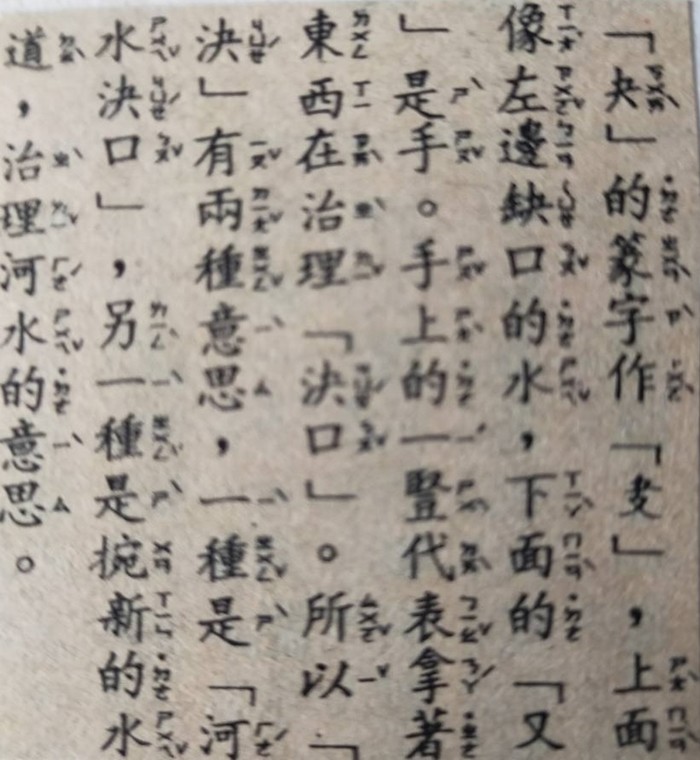 「夬」的篆字作「叏」，上面
像左邊缺口的水，下面的「又
」是手。手上的一豎代表拿著
東西在治理「決口」。所以「
決」有兩種意思，一種是「河
水決口」，另一種是掘新的水
道，治理河水的意思。